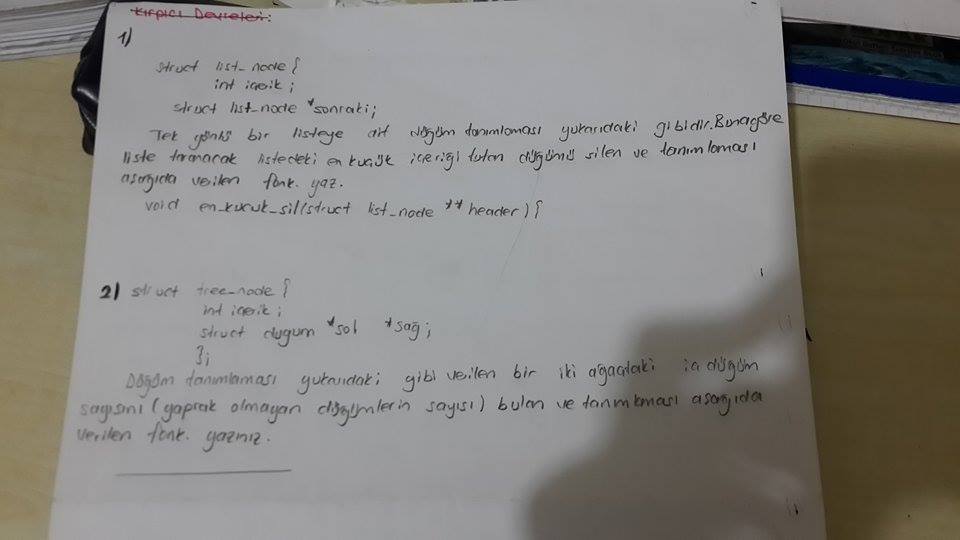 Kırpıcı Devreleri:
1)
struct list_node {
int içerik ;
struct list_node *sonraki;
Tek yönlü bir listeye ait düğüm tanımlaması yukarıdaki gibidir. Buna göre
liste taranacak listedeki en küçük içeriği tutan düğümü silen ve tanımlaması
aşağıda verilen fonk. yaz.
void en_kucuk_sil(struct list_node ** header) {
2) struct tree_node {
int içerik ;
struct dugum *sol *sağ ;
};
Düğüm tanımlaması yukarıdaki gibi verilen bir iki ağaçtaki iç düğüm
sayısını (yaprak olmayan düğümlerin sayısı) bulan ve tanımlaması aşağıda
verilen fonk. yazınız.